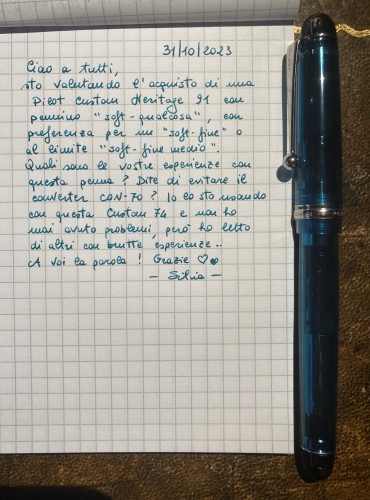 31/10/2023
Ciao a tutti,
sto valutando l'acquisto di una
Pilot Custom Heritage 91 con
pennino "soft-qualcosa", con
preferenza per un "soft-fine" o
al limite "soft-fine medio".
Quali sono le vostre esperienze con
questa penna? Dite di evitare il
converter CON-70? Io lo sto usando
con questa Custom 74 e non ho
mai avuto problemi, però ho letto
di altri con brutte esperienze..
A voi la parola! Grazie ♡♥
- Silvia -